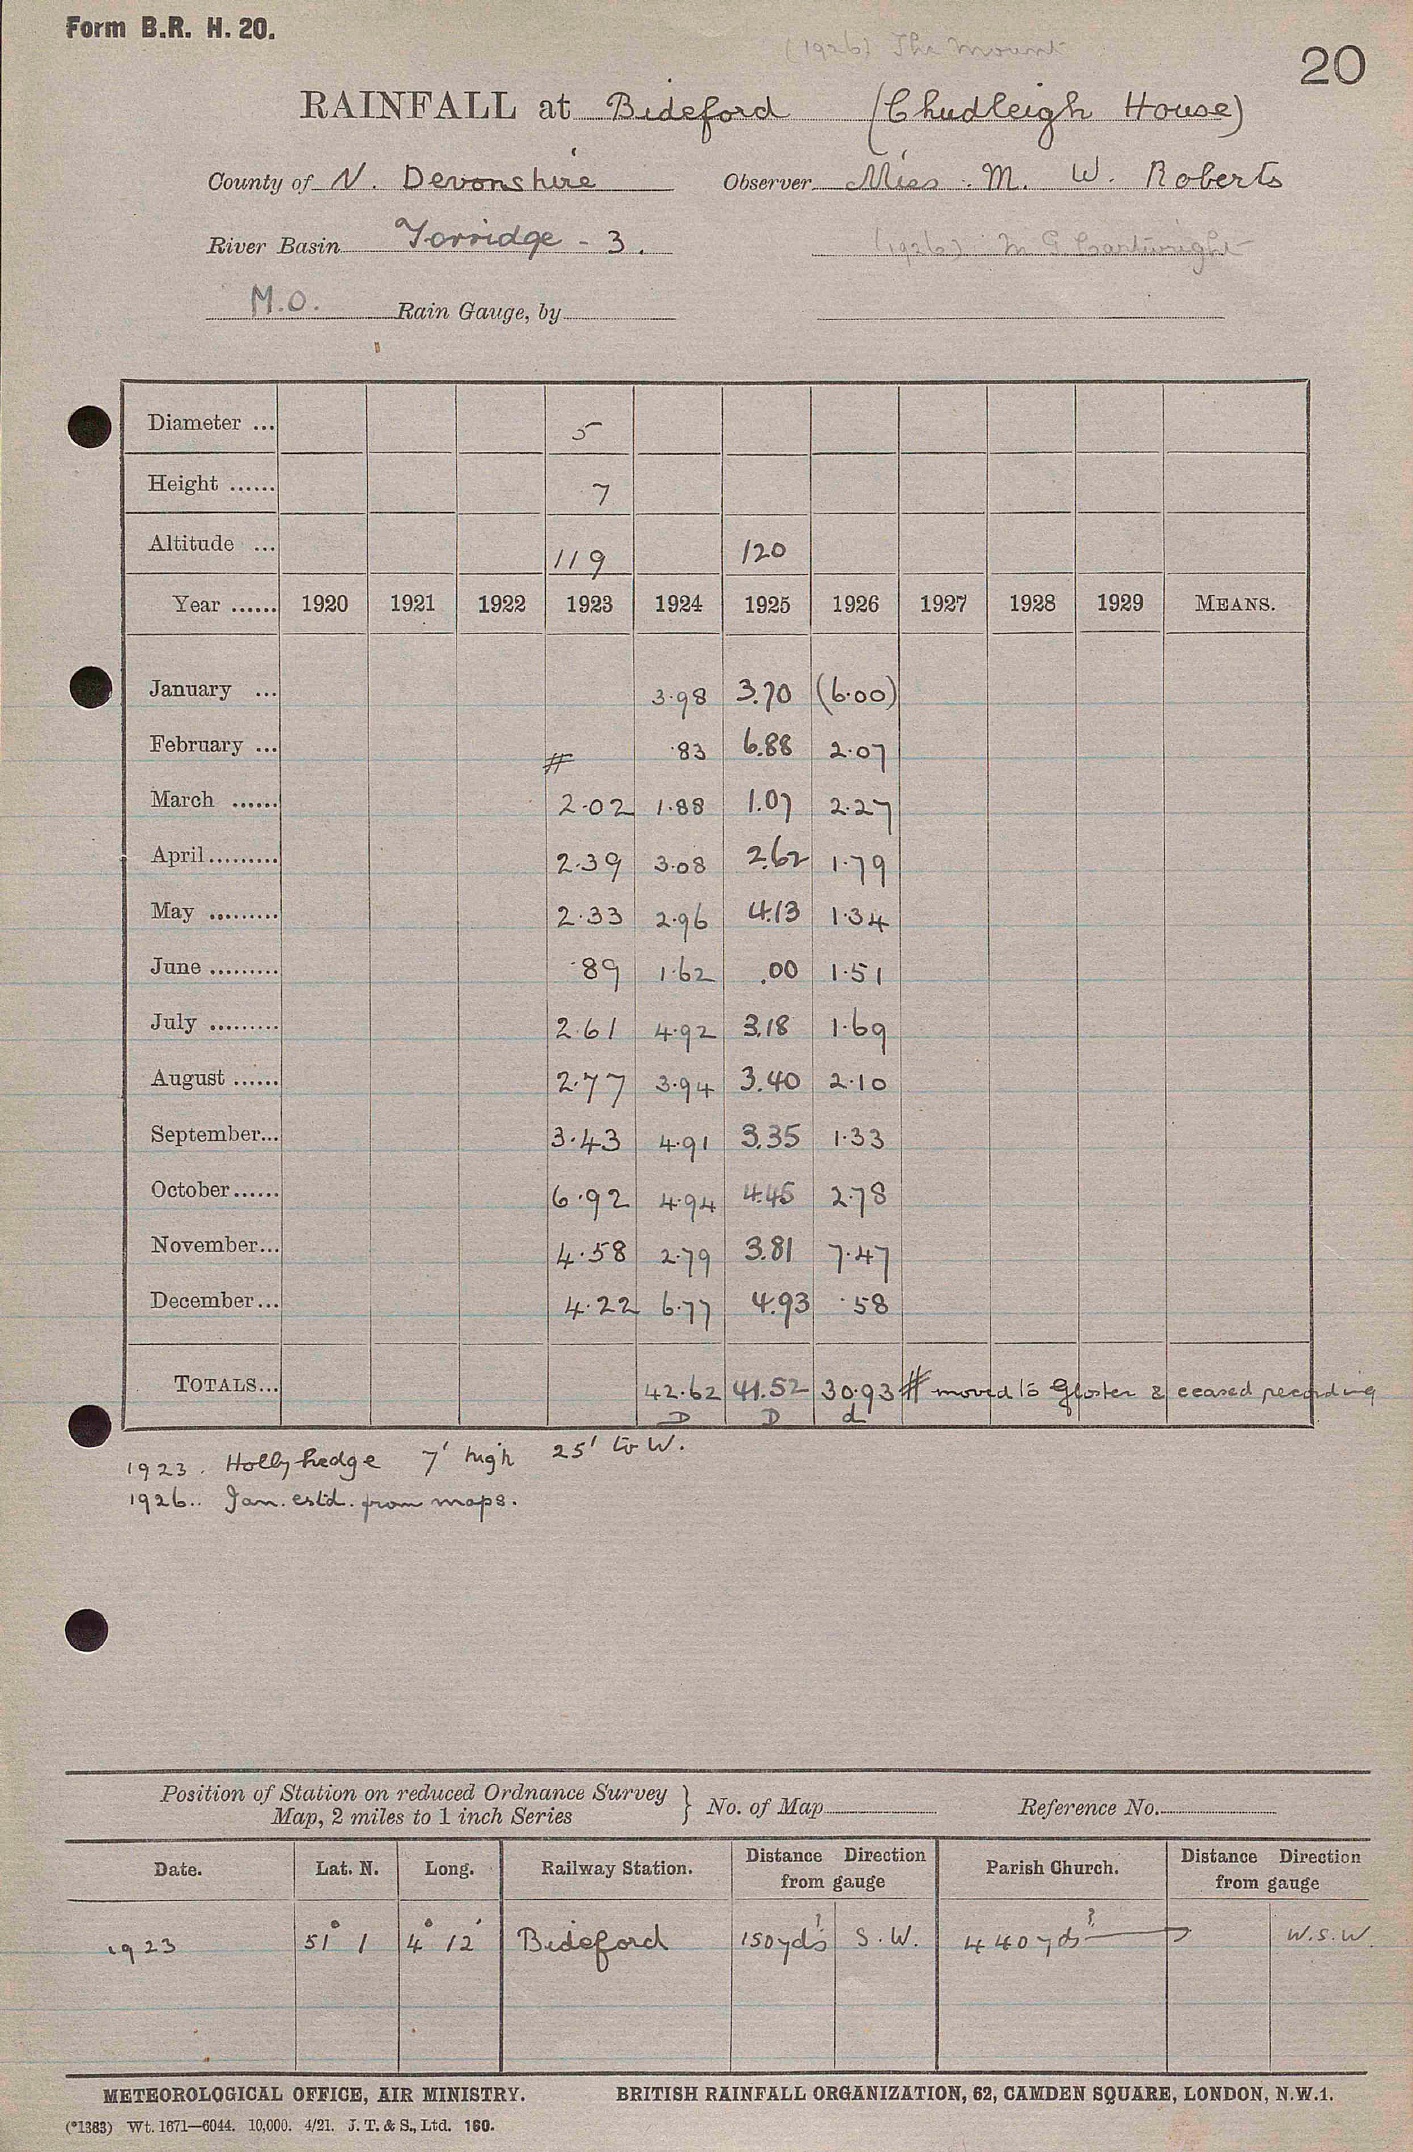 Form B.R. H. 20.
(1926) The Mount
20
RAINFALL at Bideford (Chudleigh House)
County of N. Devonshire Observer Miss. M. W. Roberts
River Basin Torridge - 3. (1926) M G Cartwright
M.O. Rain Gauge, by
Diameter ... 5
Height ...... 7
Altitude ... 119 120
Year ...... 1920 1921 1922 1923 1924 1925 1926 1927 1928 1929 MEANS.
January ... 3.98 3.70 (6.00)
February ... # .83 6.88 2.07
March ...... 2.02 1.88 1.07 2.27
April......... 2.39 3.08 2.62 1.79
May ......... 2.33 2.96 4.13 1.34
June ......... .89 1.62 .00 1.51
July ......... 2.61 4.92 3.18 1.69
August ...... 2.77 3.94 3.40 2.10
September... 3.43 4.91 3.35 1.33
October...... 6.92 4.94 4.45 2.78
November... 4.58 2.79 3.81 7.47
December... 4.22 6.77 4.93 .58
TOTALS... 42.62 41.52 30.93 # moved to Gloster & ceased recording
D D d
1923. Holly hedge 7' high 25' to W.
1926.. Jan. estd. from maps.
Position of Station on reduced Ordnance Survey } No. of Map Reference No.
Map, 2 miles to 1 inch Series
Date. Lat. N. Long. Railway Station. Distance Direction from gauge Parish Church. Distance Direction from gauge
1923 51° 1 4° 12' Bideford 150yds? S.W. 440yds? W.S.W.
METEOROLOGICAL OFFICE, AIR MINISTRY. BRITISH RAINFALL ORGANIZATION, 62, CAMDEN SQUARE, LONDON, N.W.1.
(*1383) Wt. 1671—6044. 10,000. 4/21. J. T. & S., Ltd. 160.